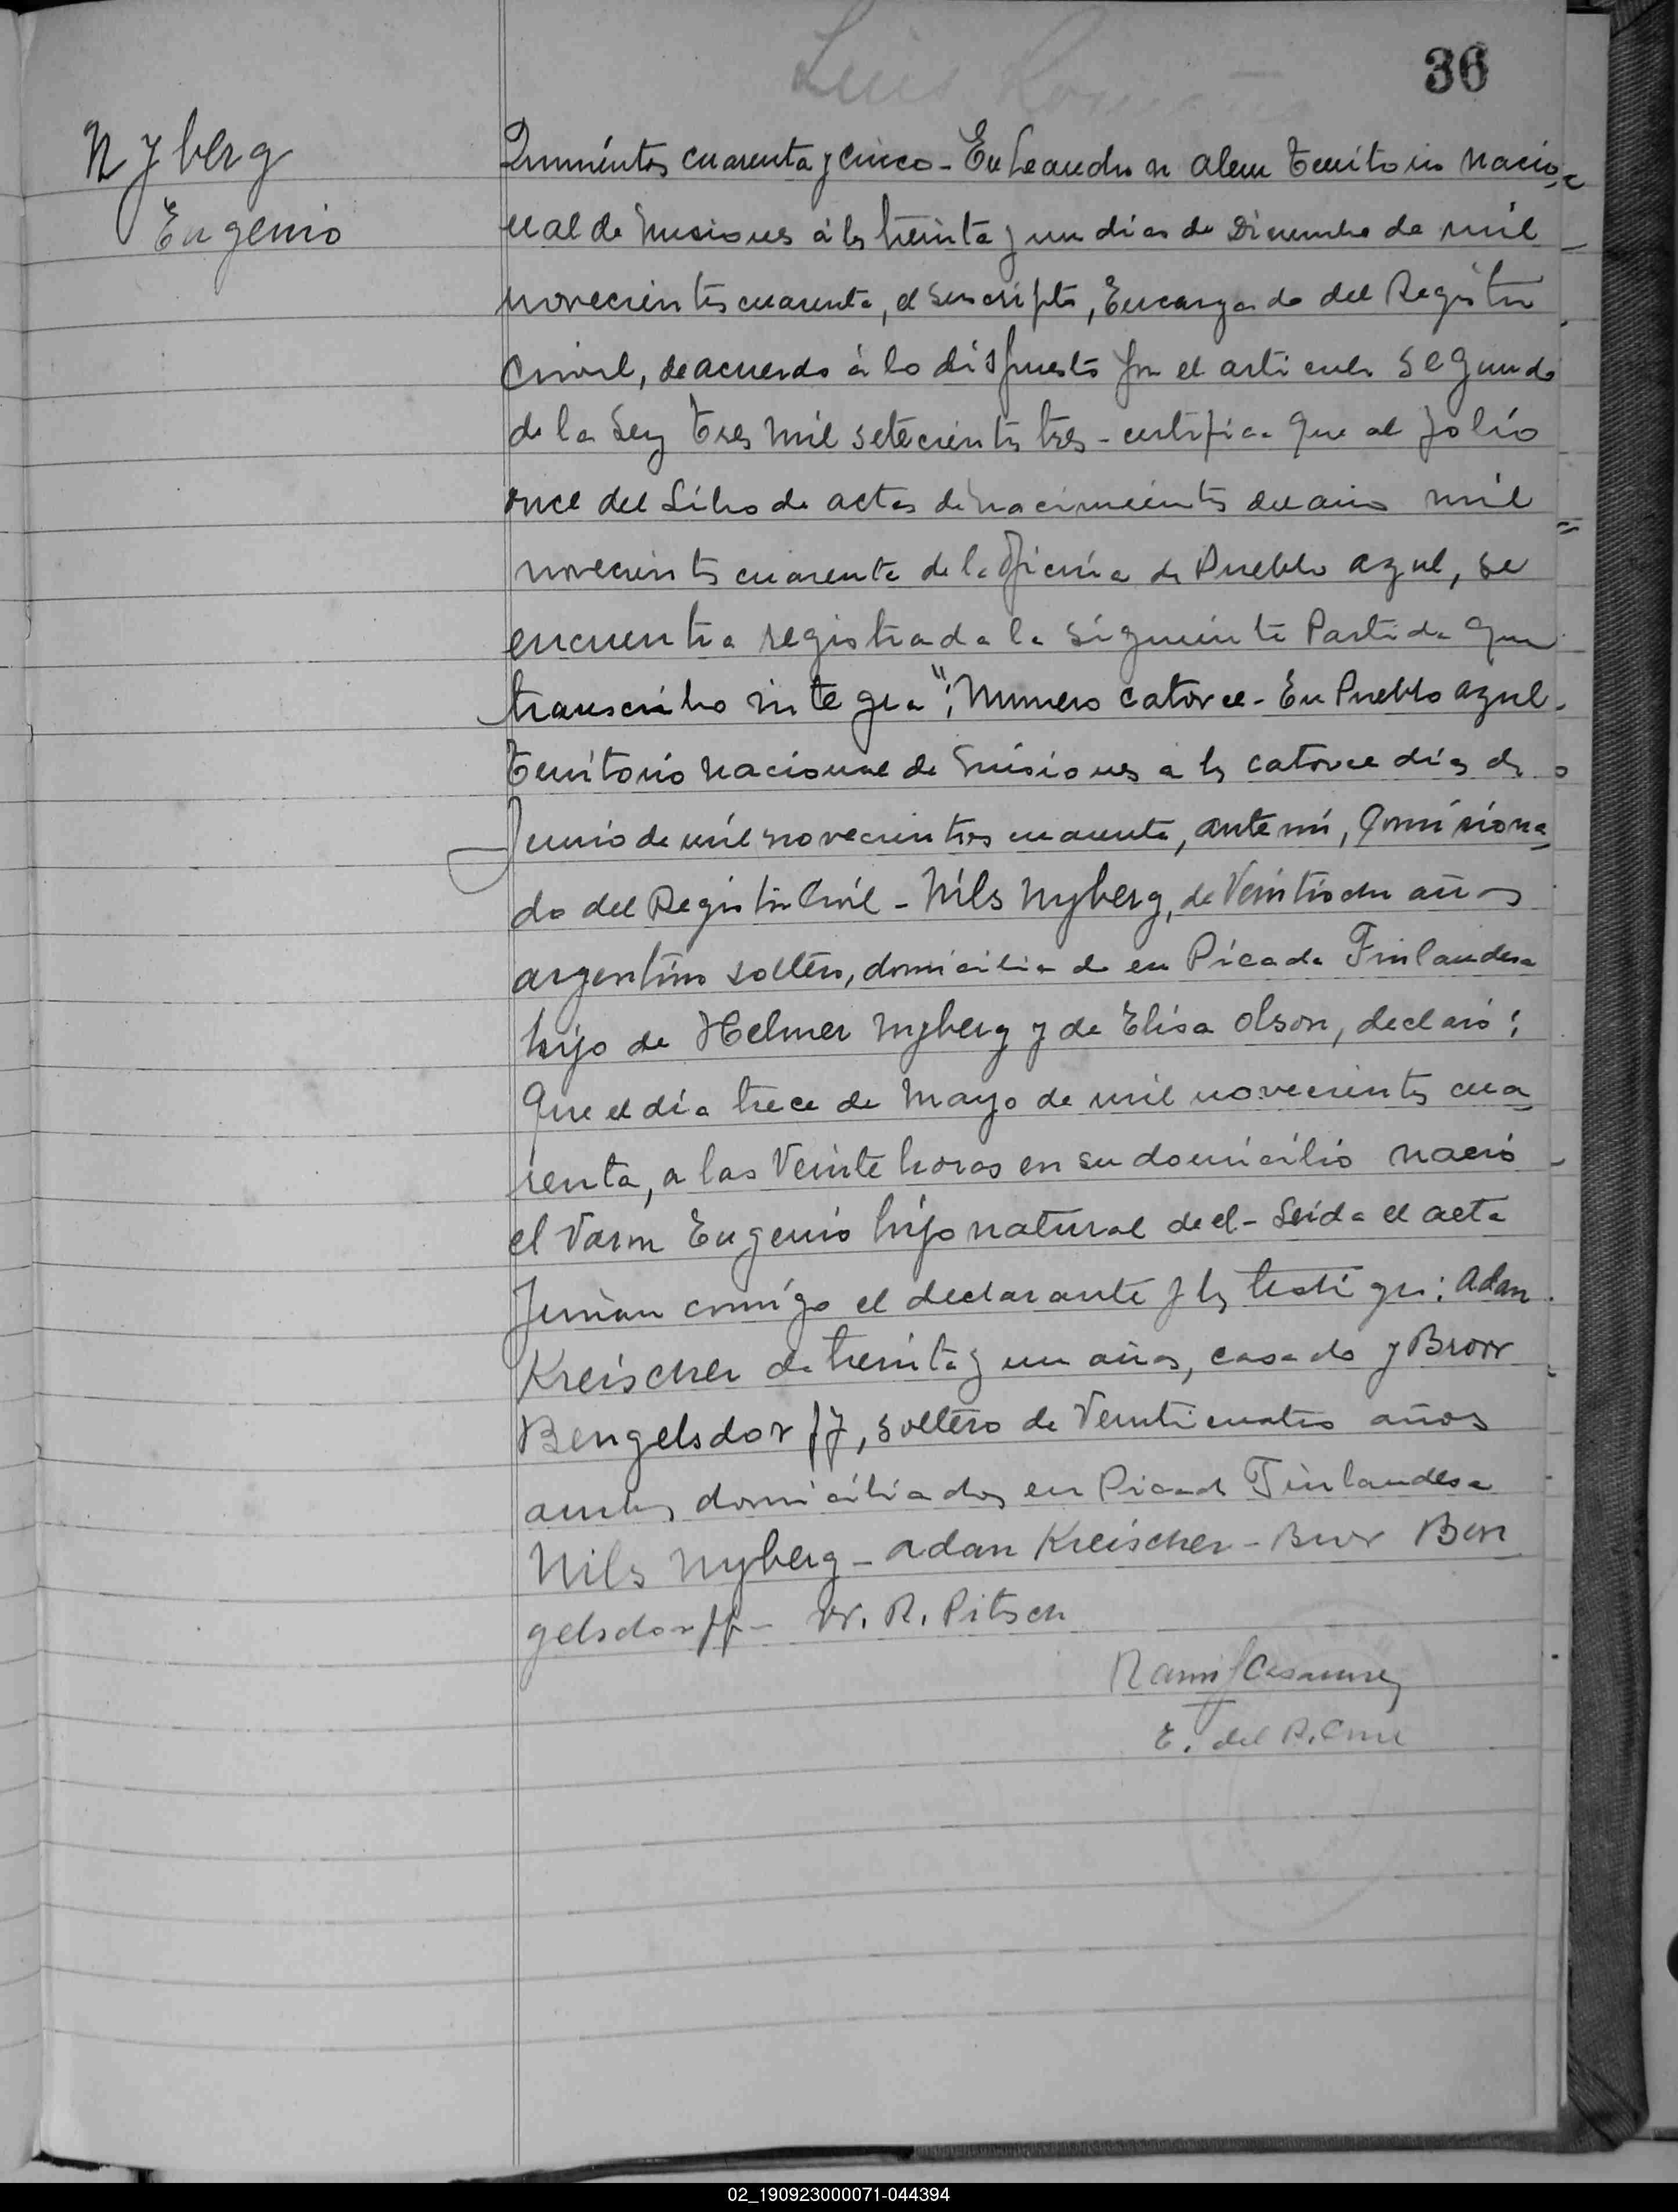 36
Nyberg
Eugenio
Quinientos cuarenta y cinco - En Leandro n Alem Territorio Nacio=
nal de Misiones á los treinta y un dias de Diciembre de mil
novecientos cuarenta, el suscripto, Encargado del Registro
Civil, de acuerdo á lo dispuesto por el articulo segundo
de la Ley tres mil setecientos tres - certifica que al folio
once del Libro de actas de nacimientos del año mil
novecientos cuarenta de la Oficina de Pueblo azul, se
encuentra registrada la siguiente Partida que
transcribo integra": Numero catorce - En Pueblo azul
Territorio nacional de Misiones a los catorce dias de
Junio de mil novecientos cuarenta, ante mi, Comisiona
do del Registro Civil - Nils Nyberg, de Veintiocho años
argentino soltero, domiciliado en Picada Finlandesa
hijo de Helmer Nyberg y de Elisa Olson, declaró:
Que el dia trece de Mayo de mil novecientos cua
renta, a las Veinte horas en su domicilio nació
el Varon Eugenio hijo natural de el - Leida el acta
firman conmigo el declarante y los testigos: Adan
Kreischer de treinta y un años, casado y Bror
Bengelsdorff, soltero de Veinticuatro años
ambos domiciliados en Picada Finlandesa
Nils Nyberg - Adan Kreischer - Bror Ben
gelsdorff - W. R. Pitsch
E. del R. Civil
02_190923000071-044394